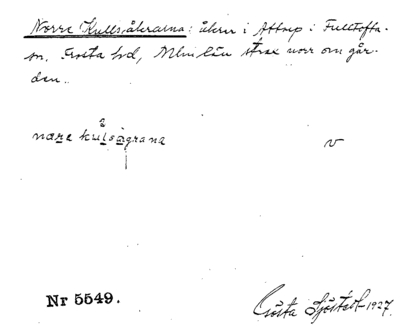 Norra Kullsåkrarna: åkrar i Attarp i Fulltofta
sn. Frosta hd, Mlm län strax norr om går-
den.
2
nare kulsågrana v
Nr 5549.
Gösta Sjöstedt 1927.